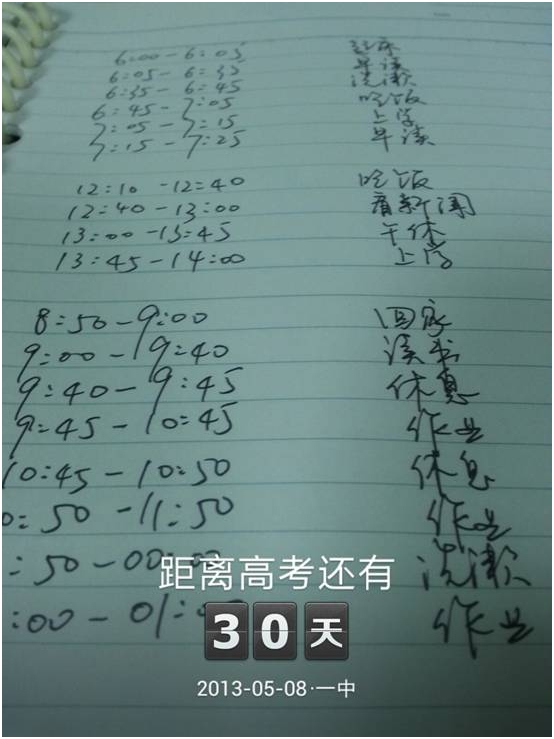 6:00-6:05 起床
6:05-6:35 早读
6:35-6:45 洗漱
6:45-7:05 吃饭
7:05-7:15 上学
7:15-7:25 早读
12:10-12:40 吃饭
12:40-13:00 看新闻
13:00-13:45 午休
13:45-14:00 上学
8:50-9:00 回家
9:00-9:40 读书
9:40-9:45 休息
9:45-10:45 作业
10:45-10:50 休息
0:50-11:50 作业
:50-00: 洗漱
:00-01: 作业
距离高考还有
30天
2013-05-08·一中